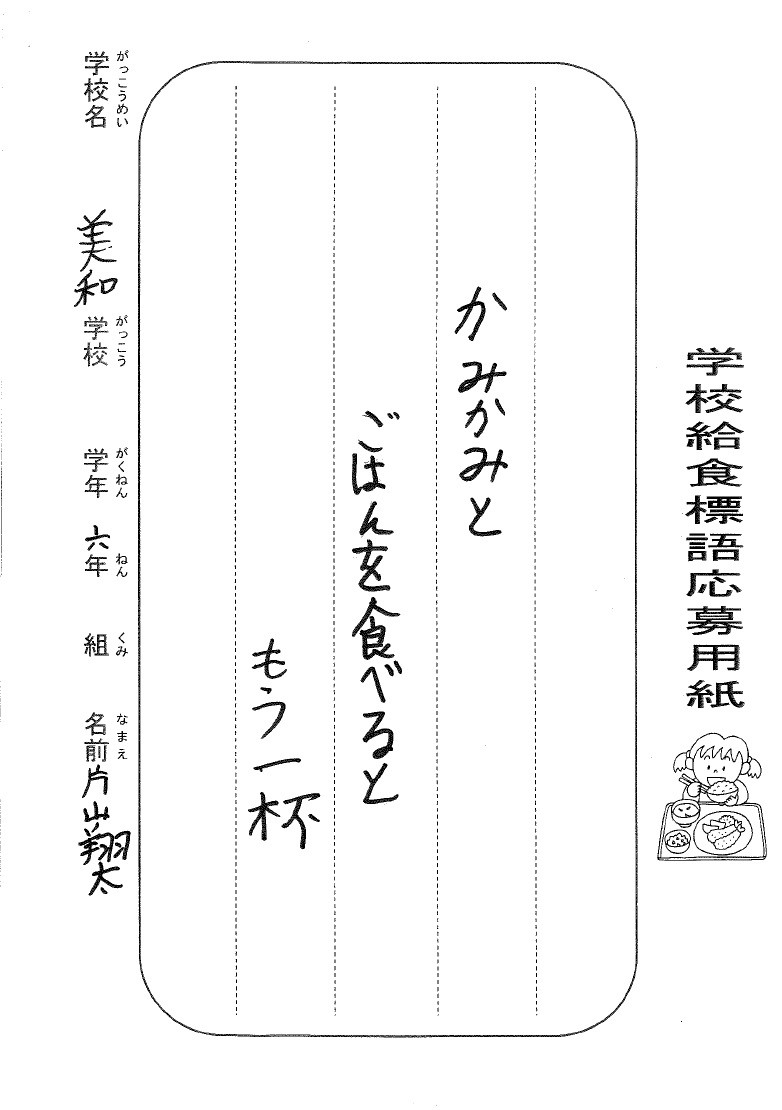 学校給食標語応募用紙
かみかみと
ごはんを食べると
もう一杯
学校名 美和 学校 学年 六年 組 名前 片山翔太
がっこうめい がっこう がくねん ねん くみ なまえ